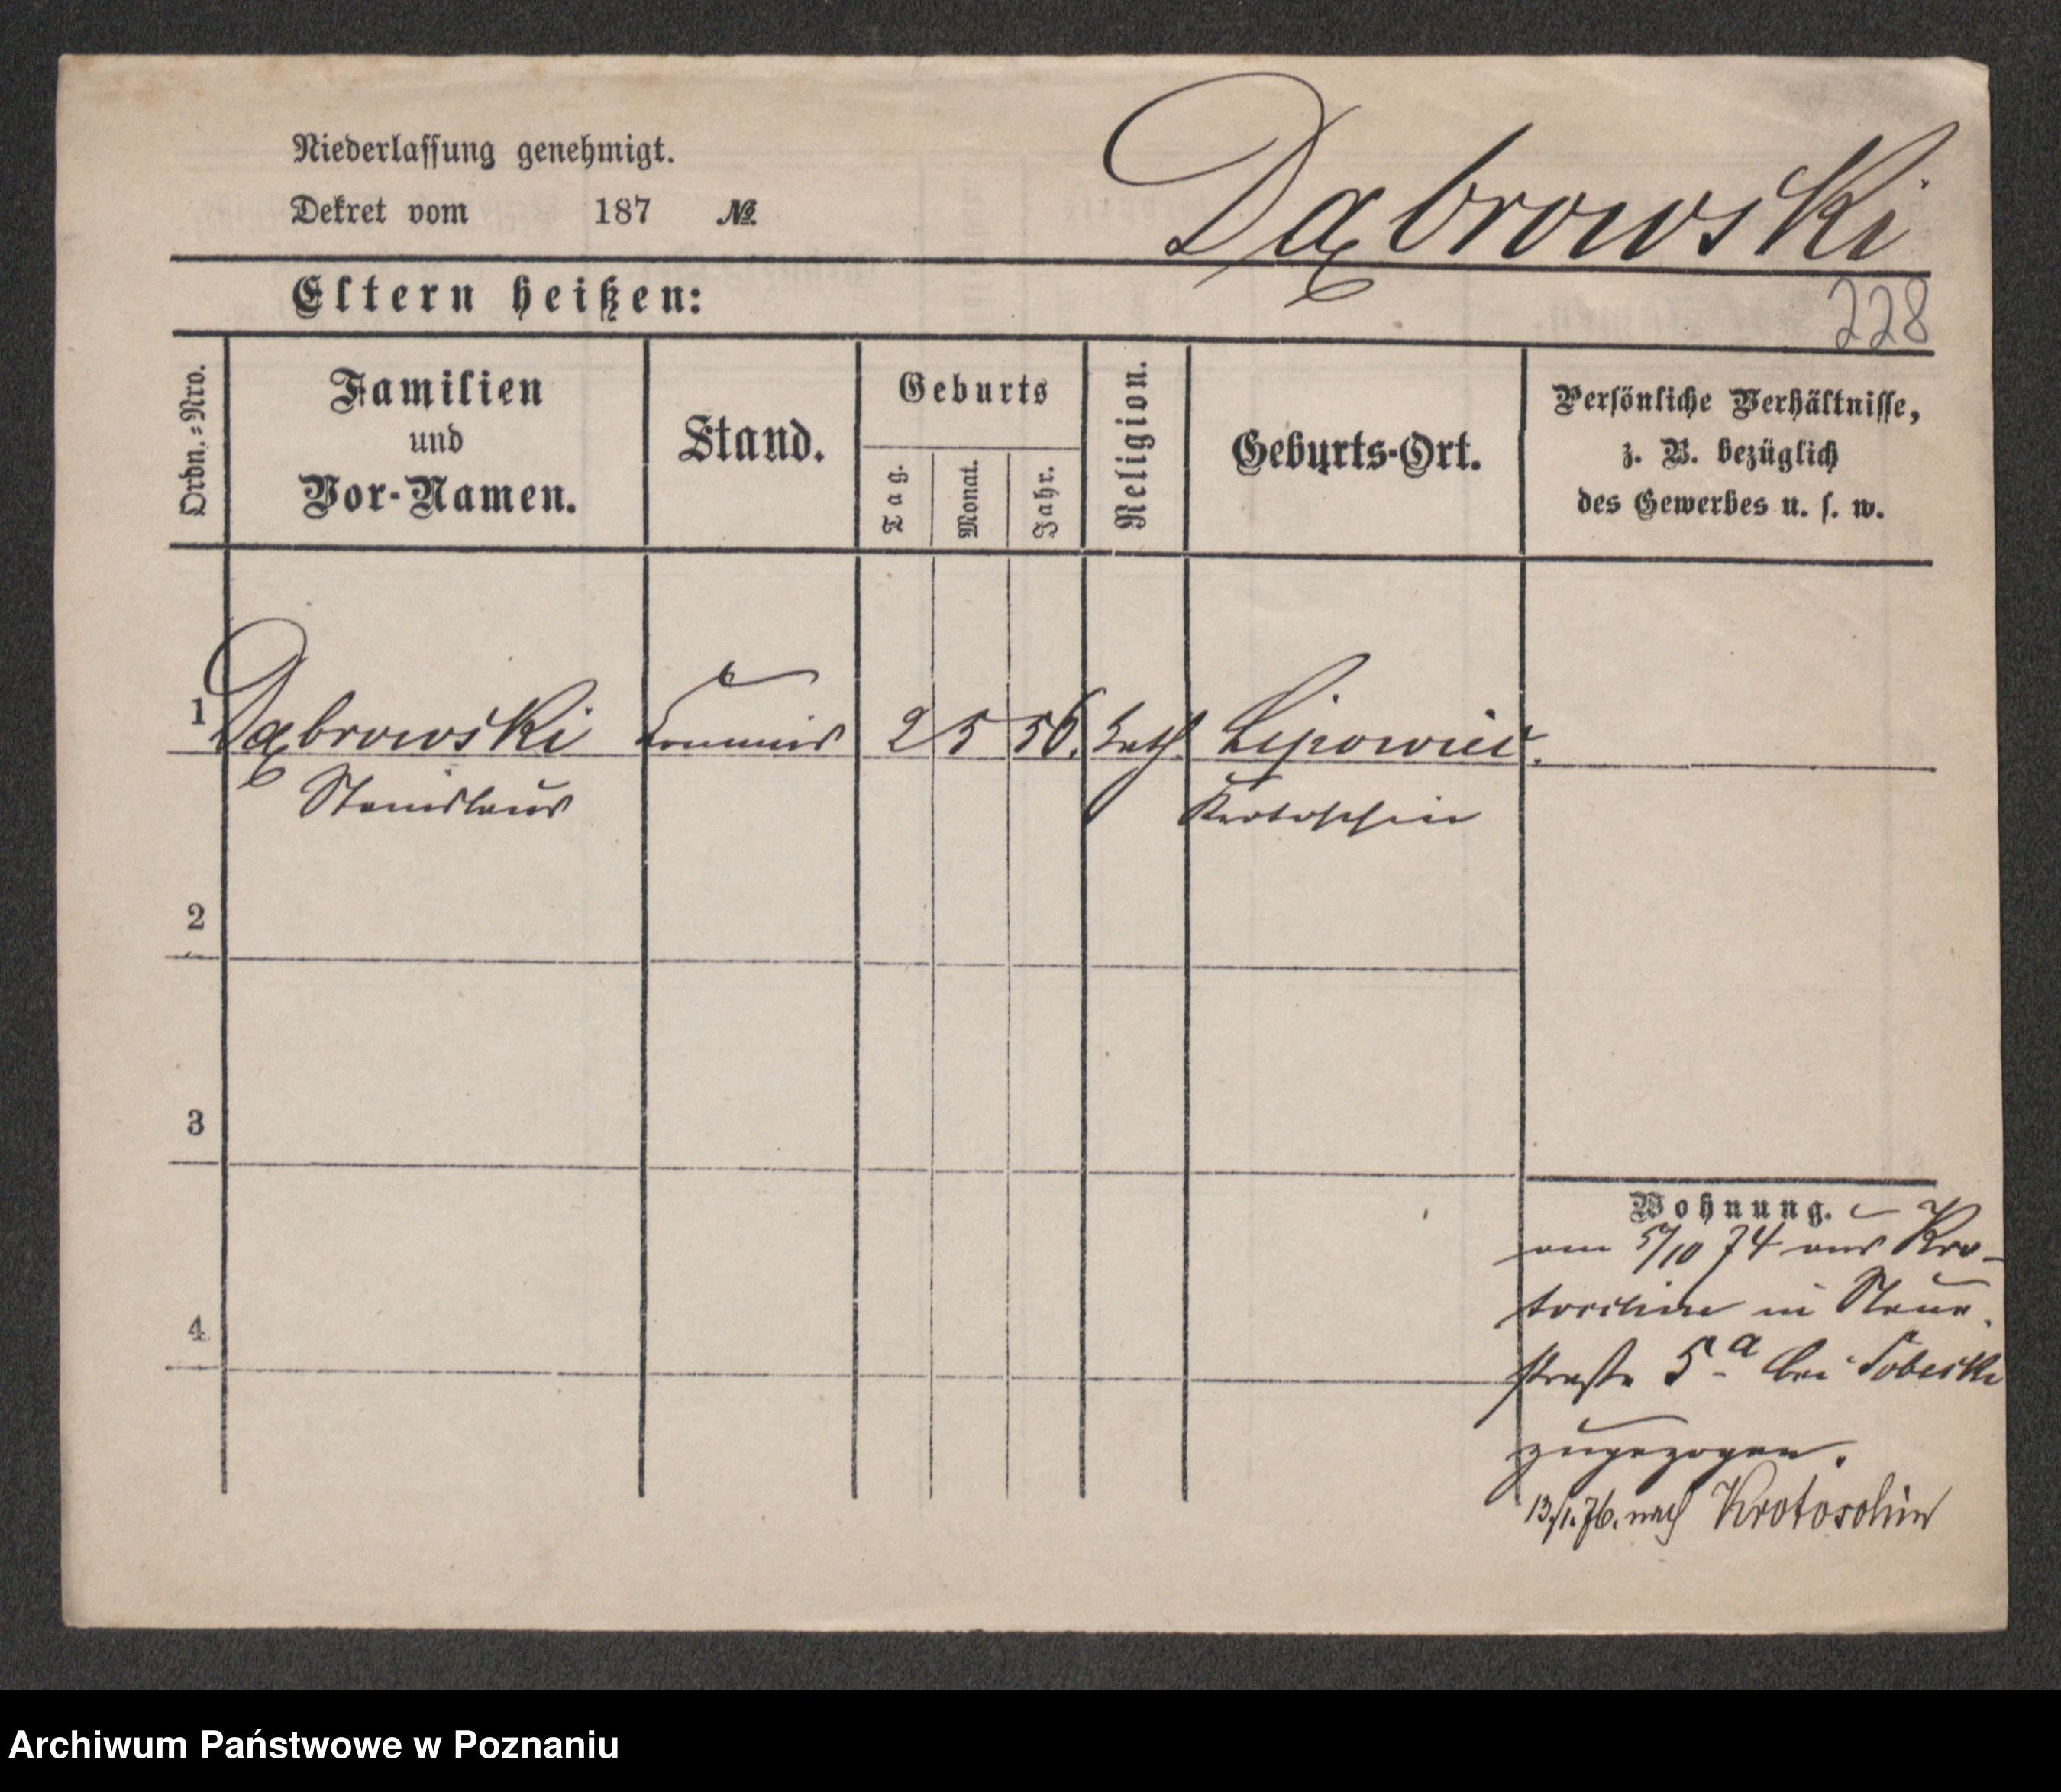 Niederlassung genehmigt.
Dekret vom 187 №
Dąbrowski
Eltern heißen:
228
Ordn.=Nro.
Familien
und
Vor-Namen.
Stand.
Geburts
Tag.
Monat.
Jahr.
Religion.
Geburts-Ort.
Persönliche Verhältnisse,
z. B. bezüglich
des Gewerbes u. s. w.
1 Dąbrowski Commis 2 5 56. kath. Lipowiec.
Stanislaus Krotoschin
2
3
4
Wohnung.
am 5/10 74 aus Kro-
toschin in
straße 5a bei Sobecki
zugezogen.
13/1.76. nach Krotoschin
Archiwum Państwowe w Poznaniu